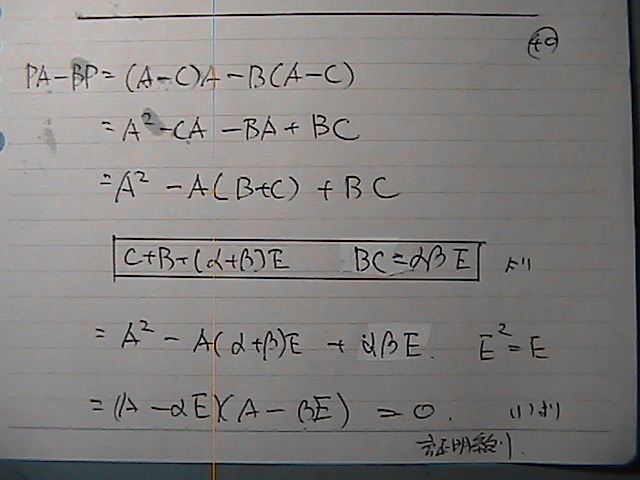 49
PA-BP=(A-C)A-B(A-C)
=A²-CA-BA+BC
=A²-A(B+C)+BC
C+B=(α+β)E BC=αβE より
=A²-A(α+β)E+αβE. E²=E
=(A-αE)(A-βE)=0. (1)より
証明終り.